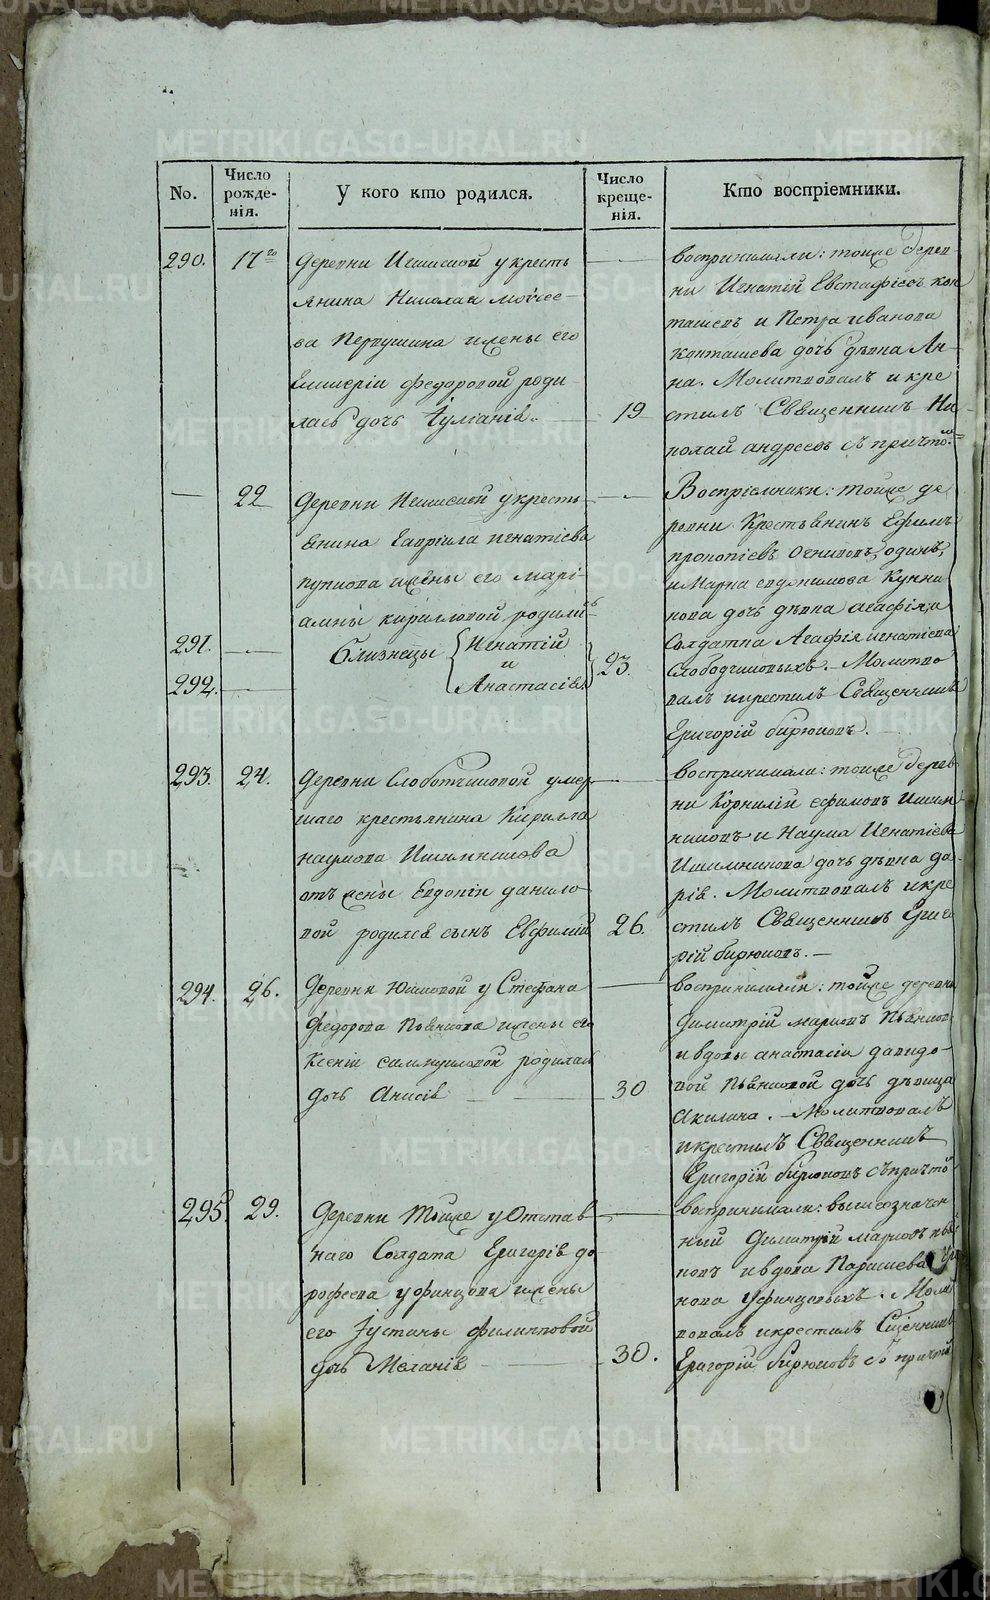 No.
Число рожде-нія.
У кого кто родился.
Число креще-нія.
Кто воспріемники.
290.
17го
деревни у кресть
янина Николая моѵсее-
ва Первушина и жены его
федоровой роди
лась дочь Іуліанія.
19
воспринимали: тойже дерев-
ни Игнатій Евстафіевъ кон
ташевъ и Петра иванова
конташева дочь дѣвка Ан-
на. Молитвовалъ и кре
стилъ Священникъ Ни
колай андреевъ съ причто.
22
деревни у кресть
янина Гавріила игнатіева
пупкова и жены его марі-
амны кириловой родились
291.
292.
близнецы
Игнатій
и
Анастасія.
23.
Воспріемники: тойже де
ревни Крестьянинъ Ефимъ
прокопіевъ одинъ,
и Марка евдокимова
нова дочь дѣвка агафія, и
Солдатка Агафія игнатіева
Слободчиковыхъ. Молитво
валъ и крестилъ Священникъ
Григорій бирюковъ.
293.
24.
деревни Слободчиковой умер
шаго крестьянина Кирилла
наумова Ишимникова
отъ жены Евдокіи данило
вой родился сынъ Евфимій
26.
воспринимали: тойже дерев
ни Корнилій ефимовъ Ишим
никовъ и Наума Игнатіева
Ишимникова дочь дѣвка да
рія. Молитвовалъ и кре
стилъ Священникъ Григо
рій бирюковъ.
294.
26.
деревни Юшковой у Стефана
федорова Пьянкова и жены его
Ксеніи самуиловой родилась
дочь Анисія
30
воспринимали: тойже деревни
Димитрій марковъ Пьянковъ
и вдовы анастасіи давидо-
вой Пьянковой дочь дѣвица
Акилина. Молитвовалъ
и крестилъ Священникъ
Григорій бирюковъ съ причто
295.
29.
деревни тойже у Отстав
наго Солдата Григорія до
рофеева уфинцова и жены
его Іустины филиповой
дочь Меланія
30.
воспринимали: вышеозначен
ный Димитрій марковъ пьян
ковъ и вдова Парасковья
нова Уфинцовыхъ. Моли
вовалъ и крестилъ Сщенникъ
Григорій бирюковъ съ причто
METRIKI.GASO-URAL.RU